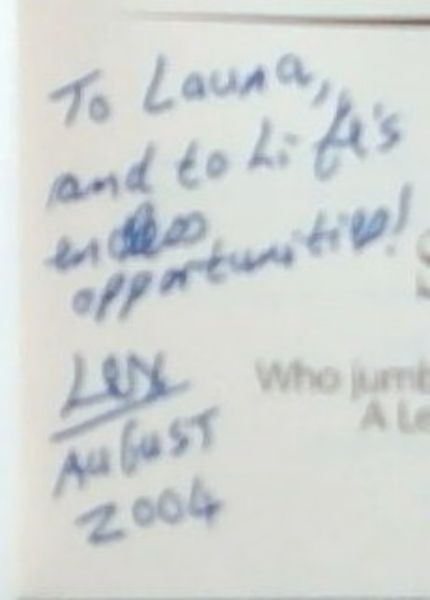 To Launa,
and to Life's
endless
opportunities!
Lex
AUGUST
2004
Who jumb
A Le